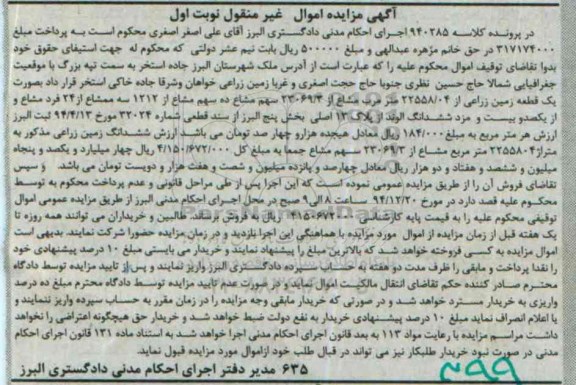 آگهی مزایده اموال غیر منقول نوبت اول
در پرونده کلاسه ۹۴۰۳۸۵ اجرای احکام مدنی دادگستری البرز آقای علی اصغر اصغری محکوم است به پرداخت مبلغ
۳۱۷۱۷۴۰۰۰ در حق خانم مژهره عبدالهی و مبلغ ۵۰۰۰۰۰ ریال بابت نیم عشر دولتی که محکوم له جهت استیفای حقوق خود
بدوا تقاضای توقیف اموال محکوم علیه را که عبارت است از آدرس ملک شهرستان البرز جاده استخر به سمت تپه بزرگ با موقعیت
جغرافیایی شمالا حاج حسین نظری جنوبا حاج حجت اصغری و غربا زمین زراعی خواهان وشرقا جاده خاکی استخر قرار داد بصورت
یک قطعه زمین زراعی از ۲۲۵۵۸/۰۴ متر مربع مشاع از ۲۳۰۶۹/۳ سهم مشاع ده سهم مشاع از ۱۲۱۲ سه ممشاع از ۲۴ فرد مشاع و
از یکصدو بیست و مزد ششدانگ الوند از پلاک ۱۳ اصلی بخش پنج البرز از سند قطعی شماره ۳۲۰۲۴ مورخ ۹۴/۴/۱۳ ثبت البرز
ارزش هر متر مربع به مبلغ ۱۸۴/۰۰۰ ریال معادل هیجده هزارو چهار صد تومان می باشد ارزش ششدانگ زمین زراعی مذکور به
متراژ ۲۲۵۵۸۰۴ متر مربع مشاع از ۲۳۰۶۹/۳ سهم مشاع جمعا به مبلغ کل ۴/۱۵۰/۶۷۲/۰۰۰ ریال چهار میلیارد و یکصد و پنجاه
میلیون و ششصد و هفتاد و دو هزار ریال معادل چهارصد و پانزده میلیون و شصت و هفت هزار و دویست تومان می باشد و سپس
تقاضای فروش آن را از طریق مزایده عمومی نموده است که این اجرا پس از طی مراحل قانونی و عدم پرداخت محکوم به توسط
محکوم علیه قصد دارد در مورخ ۹۴/۱۲/۲۰ ساعت ۸ الی ۹ صبح در محل اجرای احکام مدنی البرز از طریق مزایده عمومی اموال
توقیفی محکوم علیه را به قیمت پایه کارشناسی ۴۱۵۰۶۷۲۰۰۰ ریال به فروش رساند. طالبین و خریداران می توانند همه روزه تا
یک هفته قبل از زمان مزایده از اموال مورد مزایده با هماهنگی این اجرا بازدید و در زمان مزایده حضورا شرکت نمایند. بدیهی است
اموال مزایده به کسی فروخته خواهد شد که بالاترین مبلغ را پیشنهاد نمایند و خریدار می بایستی مبلغ ۱۰ درصد پیشنهادی خود
را نقدا پرداخت و مابقی را ظرف مدت دو هفته به حساب سپرده دادگستری البرز واریز نمایند و پس از تایید مزایده توسط دادگاه
محترم صادر کننده حکم تقاضای انتقال مالکیت اموال نماید و در صورت عدم تایید مزایده توسط دادگاه محترم مبلغ ده درصد
واریزی به خریدار مسترد خواهد شد و در صورتی که خریدار مابقی وجه مزایده را در زمان مقرر به حساب سپرده واریز ننمایند و
یا اعلام انصراف نماید مبلغ ۱۰ درصد پیشنهادی خریدار به نفع دولت ضبط خواهد شد و خریدار حق هیچگونه اعتراضی را نخواهد
داشت مراسم مزایده با رعایت مواد ۱۱۳ به بعد قانون اجرای احکام مدنی اجرا خواهد شد به استناد ماده ۱۳۱ قانون اجرای احکام
مدنی در صورت نبود خریدار طلبکار نیز می تواند در قبال طلب خود ازاموال مورد مزایده قبول نماید.
۶۳۵ مدیر دفتر اجرای احکام مدنی دادگستری البرز